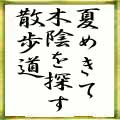 夏めきて
木陰を探す
散歩道